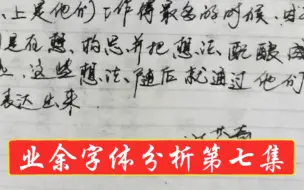 上是他们工作得最多的时候,因
是在想,构思并把想法酝酿
这些想法,随后就通过他们
表达出来
业余字体分析第七集